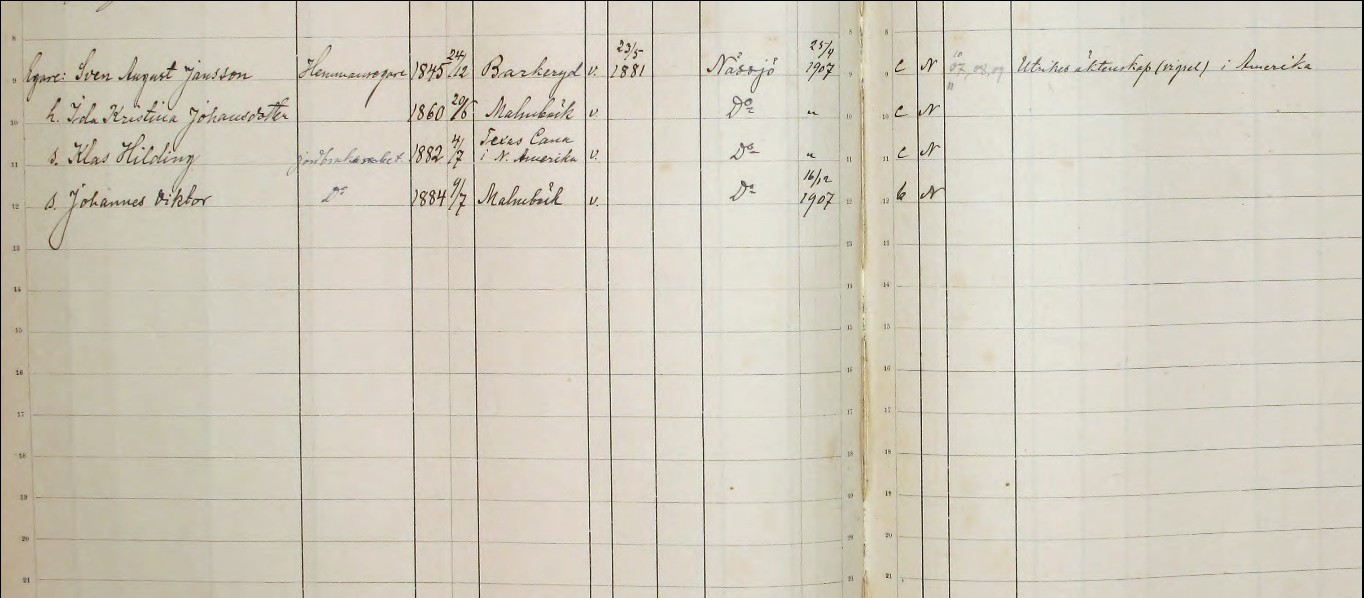 8 8 8
24/ 23/5 25/4
9 Egare: Sven August Jansson Hemmansegare 1845 12 Barkeryd v. 1881 Nässjö 1907 9 9 C N 07, 08, 09 Utrikes äktenskap (vigsel) i Amerika
10 h. Ida Kristina Johansdotter 1860 20/6 Malmbäck v. Do " 10 10 C N
11 s. Klas Hilding jordbruksarbet. 1882 4/7 Texas Cana i N. Amerika v. Do " 11 11 C N
16/12
12 s. Johannes Viktor Do 1884 9/7 Malmbäck v. Do 1907 12 12 b N
13 13 13
14 14 14
15 15 15
16 16 16
17 17 17
18 18 18
19 19 19
20 20 20
21 21 21